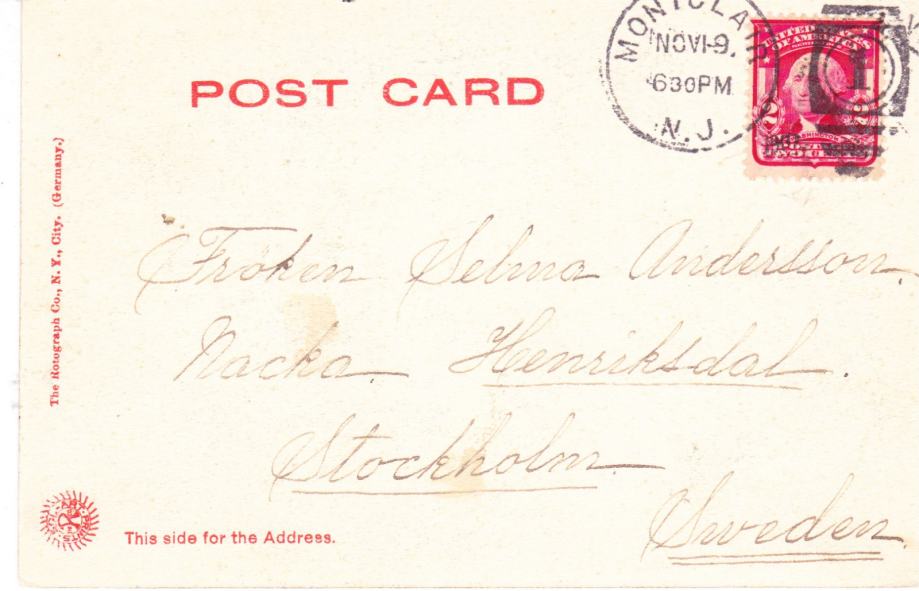 MONTCLAIR
NOV 19.
630PM
N. J.
UNITED STATES
OF AMERICA
2 2
WASHINGTON
1
POST CARD
The Rotograph Co., N. Y., City. (Germany.)
Fröken Selma Andersson.
Nacka Henriksdal.
Stockholm
Sweden.
This side for the Address.